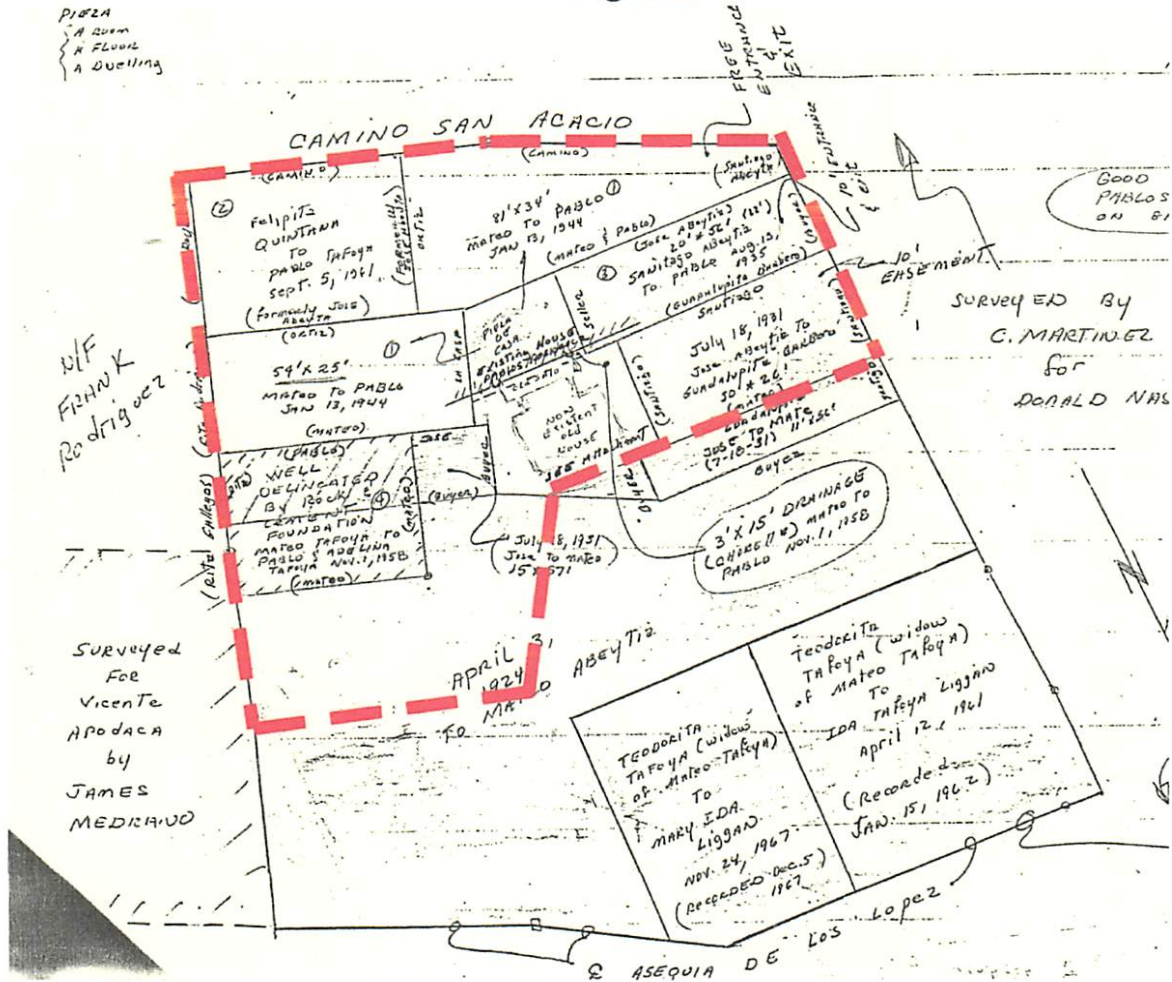 PIEZA
A ROOM
A FLOOR
A Dwelling
FREE
ENTRANCE
&
EXIT
CAMINO SAN ACACIO
(CAMINO)
(CAMINO)
(Santiago
Abeyta)
10' ENTRANCE
& exit
GOOD
PABLOS
ON
②
Felipita
QUINTANA
TO
PABLO TAFOYA
Sept. 5, 1961
(formerly Jose
Abeyta
(ORTIZ)
ORTIZ
81' X 34' ①
MATEO TO PABLO
JAN 13, 1944
(MATEO & PABLO)
(Jose Abeytia)
20' x 56' (22')
③ SANTIAGO ABEYTIA
TO PABLO AUG. 13,
1935
(GUADALUPITA BARBERO)
SANTIAGO
10'
EASEMENT
SURVEYED By
C. MARTINEZ
for
DONALD NAS
N/F
FRANK
Rodriguez
①
54' X 25'
MATEO TO PABLO
JAN 13, 1944
(MATEO)
LA CASA
PIEZA
DE
CASA
EXISTING HOUSE
Seller
NON
Existent
old
HOUSE
SEE Attachment
(Santiago)
July 18, 1931
Jose Abeytia To
Guadalupita BARBERO
50' x 26'
(mateo)
JOSE TO MATE
(7-18-31) 11' x 56'
BUYER
(PABLO)
WELL
DELINEATED
By ROCK &
CEMENT
FOUNDATION
④
MATEO TAFOYA TO
PABLO & ADELINA
TAFOYA NOV. 1, 1958
(MATEO)
(MATEO)
JOSE
BUYER
(Buyer)
(Rita Gallegos)
(July 18, 1931
Jose to Mateo
15 x 57'
3' X 15' DRAINAGE
MATEO TO
PABLO NOV. 1, 1958
Surveyed
FOR
Vicente
APODACA
by
JAMES
MEDRANO
APRIL 3,
1924
TO MA O ABEYTIA
TEODORITA
TAFOYA (widow
of Mateo TAFOYA)
TO
MARY IDA
LIGGAN
NOV. 24, 1967
(RECORDED DEC. 5
1967
Teodorita
TAFOYA (widow
of MATEO TAFOYA)
TO
IDA TAFOYA LIGGAN
April 12, 1961
(Recorded
JAN. 15, 1962)
ASEQUIA DE LOS LOPEZ